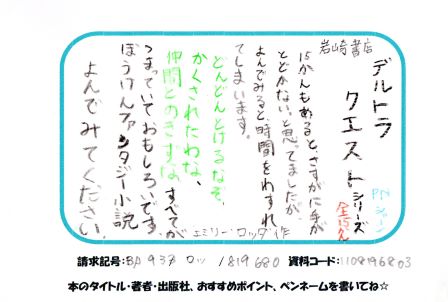 デルトラ
クエスト シリーズ
全15かん
PN シーナ
岩崎書店
15かんもあると、さすがに手が
とどかない。と思ってましたが、
よんでみると、時間をわすれ
てしまいます。
どんどんとけるなぞ、
かくされたわな、
仲間とのきずな、すべてが
つまっていておもしろいです。
ぼうけんファンタジー小説
よんでみてください。
エミリー・ロッダ 作
請求記号: BA 933 ロッ 1819680 資料コード: 1108196803
本のタイトル・著者・出版社、おすすめポイント、ペンネームを書いてね☆